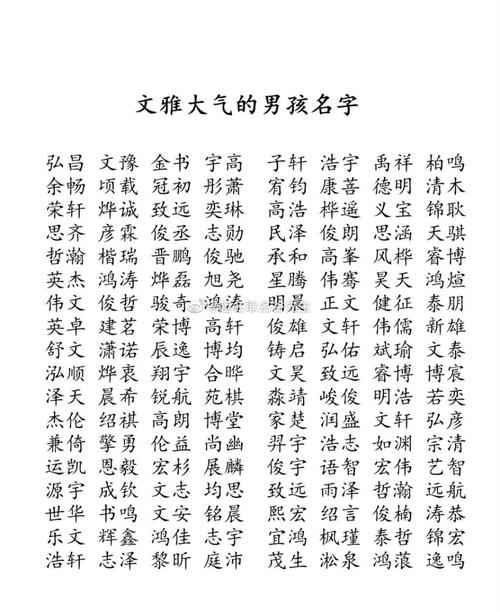 文雅大气的男孩名字
弘昌 文豫 金书 宇高 子轩 浩宇 禹祥 柏鸣
余畅 顷载 冠初 彤萧 宥钧 康善 德明 清木
荣轩 烨诚 致远 奕琳 高浩 桦遥 义宝 锦耿
思齐 彦霖 俊丞 志勋 民泽 俊朗 思涵 天骐
哲瀚 楷瑞 晋鹏 俊驰 承和 高峯 风桦 睿博
英杰 鸿涛 烨磊 旭尧 星腾 伟骞 昊天 鸿煊
伟文 俊哲 骏奇 鸿涛 明晨 正文 健征 泰朋
英卓 建茗 荣博 高轩 俊雄 文轩 伟儒 新雄
舒文 潇诺 辰逸 博均 铸启 弘佑 斌瑜 文泰
泓顺 烨衷 翔宇 合晔 文昊 致远 睿博 博宸
泽天 晨希 锐航 苑棋 淼靖 峻俊 明浩 若奕
杰伦 绍祺 高朗 博堂 家楚 润盛 文轩 弘彦
兼倚 擎勇 伦益 尚幽 羿宇 浩志 如渊 宗清
运凯 恩毅 宏杉 展麟 俊宇 语智 宏伟 艺智
源宇 成钦 文志 均思 致远 雨泽 哲瀚 远航
世华 书鸣 文安 铭晨 熙宏 绍言 俊楠 涛恭
乐文 辉鑫 鸿佳 志宇 宜鸿 枫瑾 泰哲 锦宏
浩轩 志泽 黎昕 庭沛 茂生 淞泉 鸿菠 逸鸣